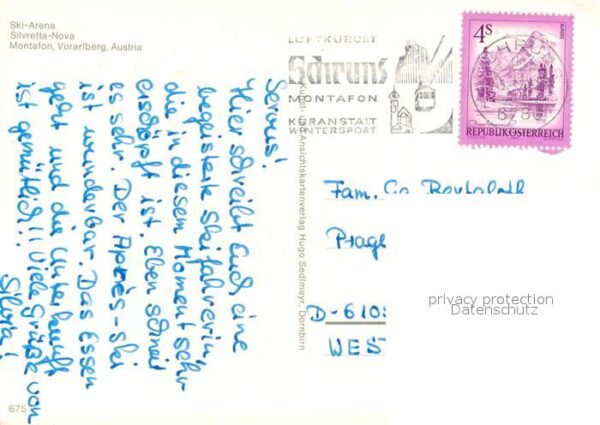 Ski-Arena
Silvretta-Nova
Montafon, Vorarlberg, Austria
Servus!
Hier schreibt Euch eine
begeisterte Skifahrerin,
die in diesem Moment sehr
erschöpft ist. Eben schneit
es sehr. Der Après-ski
ist wunderbar. Das Essen
geht und die Unterkunft
ist gemütlich!! Viele Grüße von
Silvia!
675
Kunst- und Ansichtskartenverlag Hugo Sedlmayr, Dornbirn
LUFTKURORT
Schruns
MONTAFON
KURANSTALT
WINTERSPORT
4S
REPUBLIK ÖSTERREICH
6780
Fam.
D-610
WES
privacy protection
Datenschutz